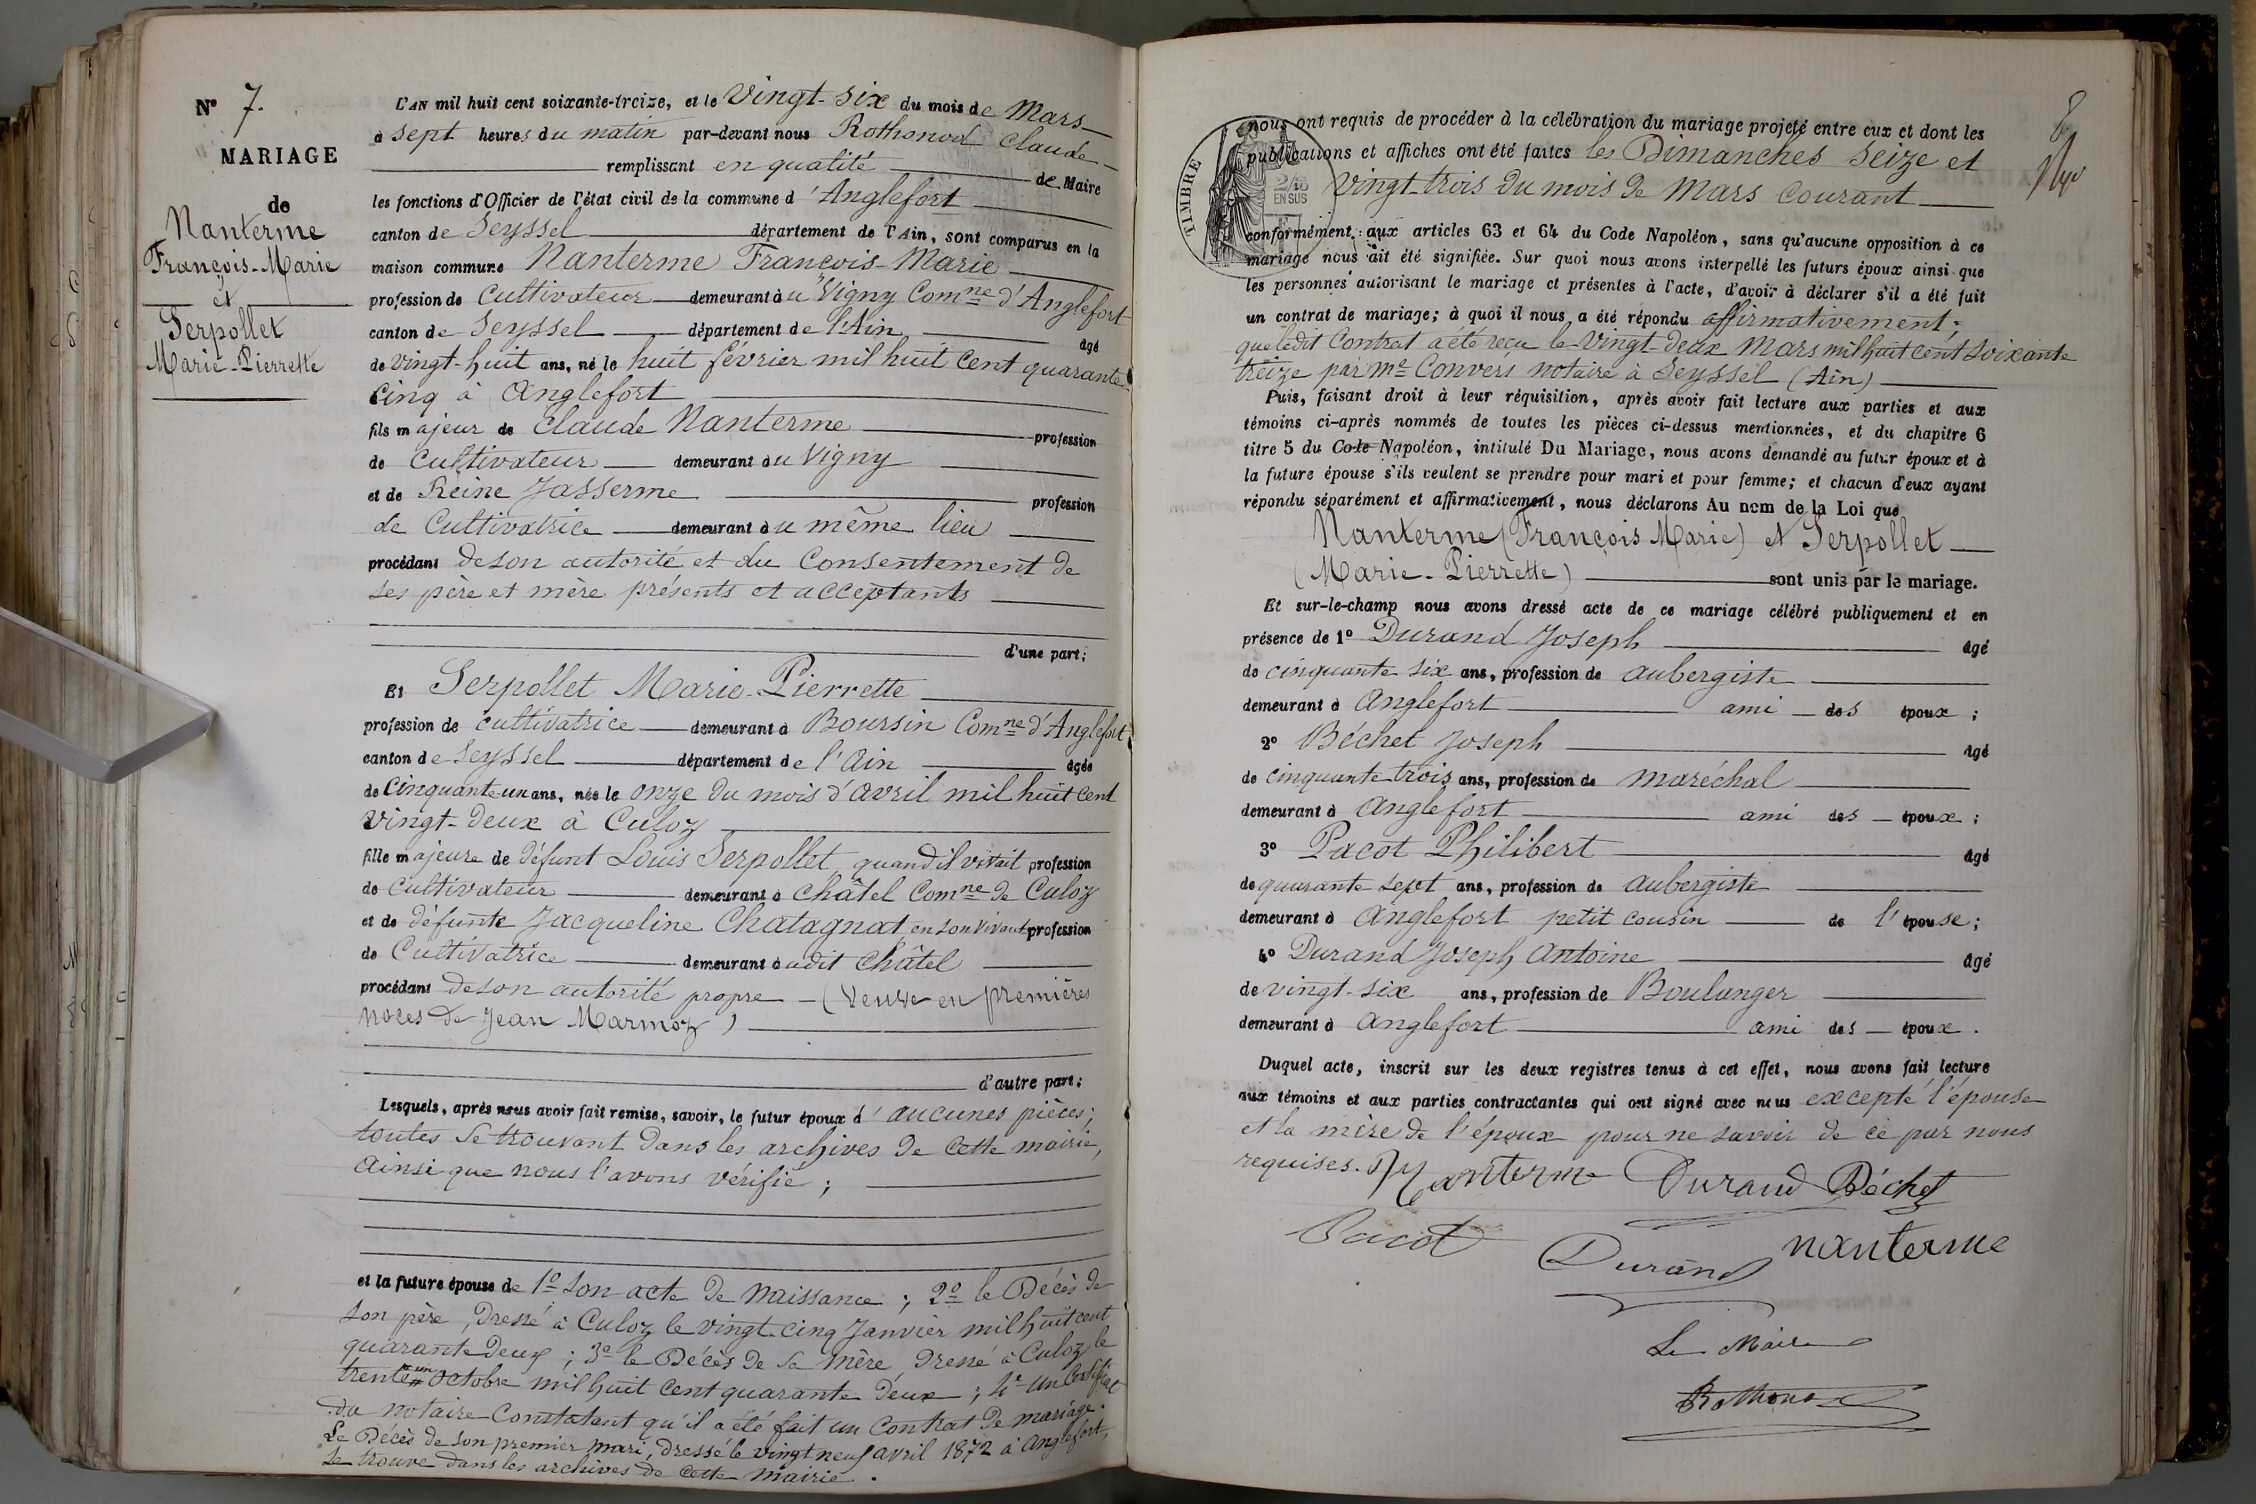 N° 7.
MARIAGE
de
Nanterme
François-Marie
et
Serpollet
Marie-Pierrette
L'AN mil huit cent soixante-treize, et le Vingt-Six du mois de Mars
à sept heures du matin par-devant nous Rothonod Claude
remplissant en qualité de Maire
les fonctions d'Officier de l'état civil de la commune d'Anglefort
canton de Seyssel département de l'Ain, sont comparus en la
maison commune Nanterme François-Marie
profession de Cultivateur demeurant à u Vigny Comne d'Anglefort
canton de Seyssel département de l'Ain âgé
de vingt-huit ans, né le huit février mil huit cent quarante
cinq à Anglefort
fils majeur de Claude Nanterme profession
de Cultivateur demeurant à u Vigny
et de Reine Jasserme profession
de Cultivatrice demeurant à u même lieu
procédant de son autorité et du Consentement de
ses père et mère présents et acceptants
d'une part;
Et Serpollet Marie-Pierrette
profession de cultivatrice demeurant à Boursin Comne d'Anglefort
canton de Seyssel département de l'Ain âgée
de Cinquante-un ans, née le onze du mois d'avril mil huit cent
vingt-deux à Culoz
fille majeure de défunt Louis Serpollet quand il vivait profession
de Cultivateur demeurant à Châtel Comne de Culoz
et de défunte Jacqueline Chatagnat en son vivant profession
de Cultivatrice demeurant audit Châtel
procédant de son autorité propre - (Veuve en premières
noces de Jean Marmoz)
d'autre part;
Lesquels, après nous avoir fait remise, savoir, le futur époux d'aucunes pièces;
toutes se trouvant dans les archives de cette mairie,
ainsi que nous l'avons vérifié;
et la future épouse de 1° Son acte de Naissance; 2° le Décès de
son père, dressé à Culoz le vingt-cinq Janvier mil huit cent
quarante deux; 3° le Décès de sa mère dressé à Culoz le
trente un octobre mil huit cent quarante deux; 4° un Certificat
du notaire Constatant qu'il a été fait un Contrat de mariage.
Le Décès de son premier mari, dressé le vingt neuf avril 1872 à Anglefort,
se trouve dans les archives de cette mairie.
8
TIMBRE
2/10
EN SUS
nous ont requis de procéder à la célébration du mariage projeté entre eux et dont les
publications et affiches ont été faites les Dimanches Seize et
Vingt-trois du mois de Mars courant
conformément aux articles 63 et 64 du Code Napoléon, sans qu'aucune opposition à ce
mariage nous ait été signifiée. Sur quoi nous avons interpellé les futurs époux ainsi que
les personnes autorisant le mariage et présentes à l'acte, d'avoir à déclarer s'il a été fait
un contrat de mariage; à quoi il nous a été répondu affirmativement;
que ledit Contrat a été reçu le Vingt-deux Mars mil huit cent soixante
treize par Me Convers notaire à Seyssel (Ain)
Puis, faisant droit à leur réquisition, après avoir fait lecture aux parties et aux
témoins ci-après nommés de toutes les pièces ci-dessus mentionnées, et du chapitre 6
titre 5 du Code Napoléon, intitulé Du Mariage, nous avons demandé au futur époux et à
la future épouse s'ils veulent se prendre pour mari et pour femme; et chacun d'eux ayant
répondu séparément et affirmativement, nous déclarons Au nom de la Loi que
Nanterme (François Marie) et Serpollet
(Marie-Pierrette) sont unis par le mariage.
Et sur-le-champ nous avons dressé acte de ce mariage célébré publiquement et en
présence de 1° Durand Joseph âgé
de cinquante six ans, profession de aubergiste
demeurant à Anglefort ami des époux;
2° Béchet Joseph âgé
de cinquante trois ans, profession de maréchal
demeurant à Anglefort ami des époux;
3° Pacot Philibert âgé
de quarante sept ans, profession de aubergiste
demeurant à Anglefort petit cousin de l'épouse;
4° Durand Joseph Antoine âgé
de vingt-six ans, profession de Boulanger
demeurant à Anglefort ami des époux.
Duquel acte, inscrit sur les deux registres tenus à cet effet, nous avons fait lecture
aux témoins et aux parties contractantes qui ont signé avec nous excepté l'épouse
et la mère de l'époux pour ne savoir de ce par nous
requises. Nanterme Durand Béchet
Pacot Durand nanterme
Le Maire
Rothonod